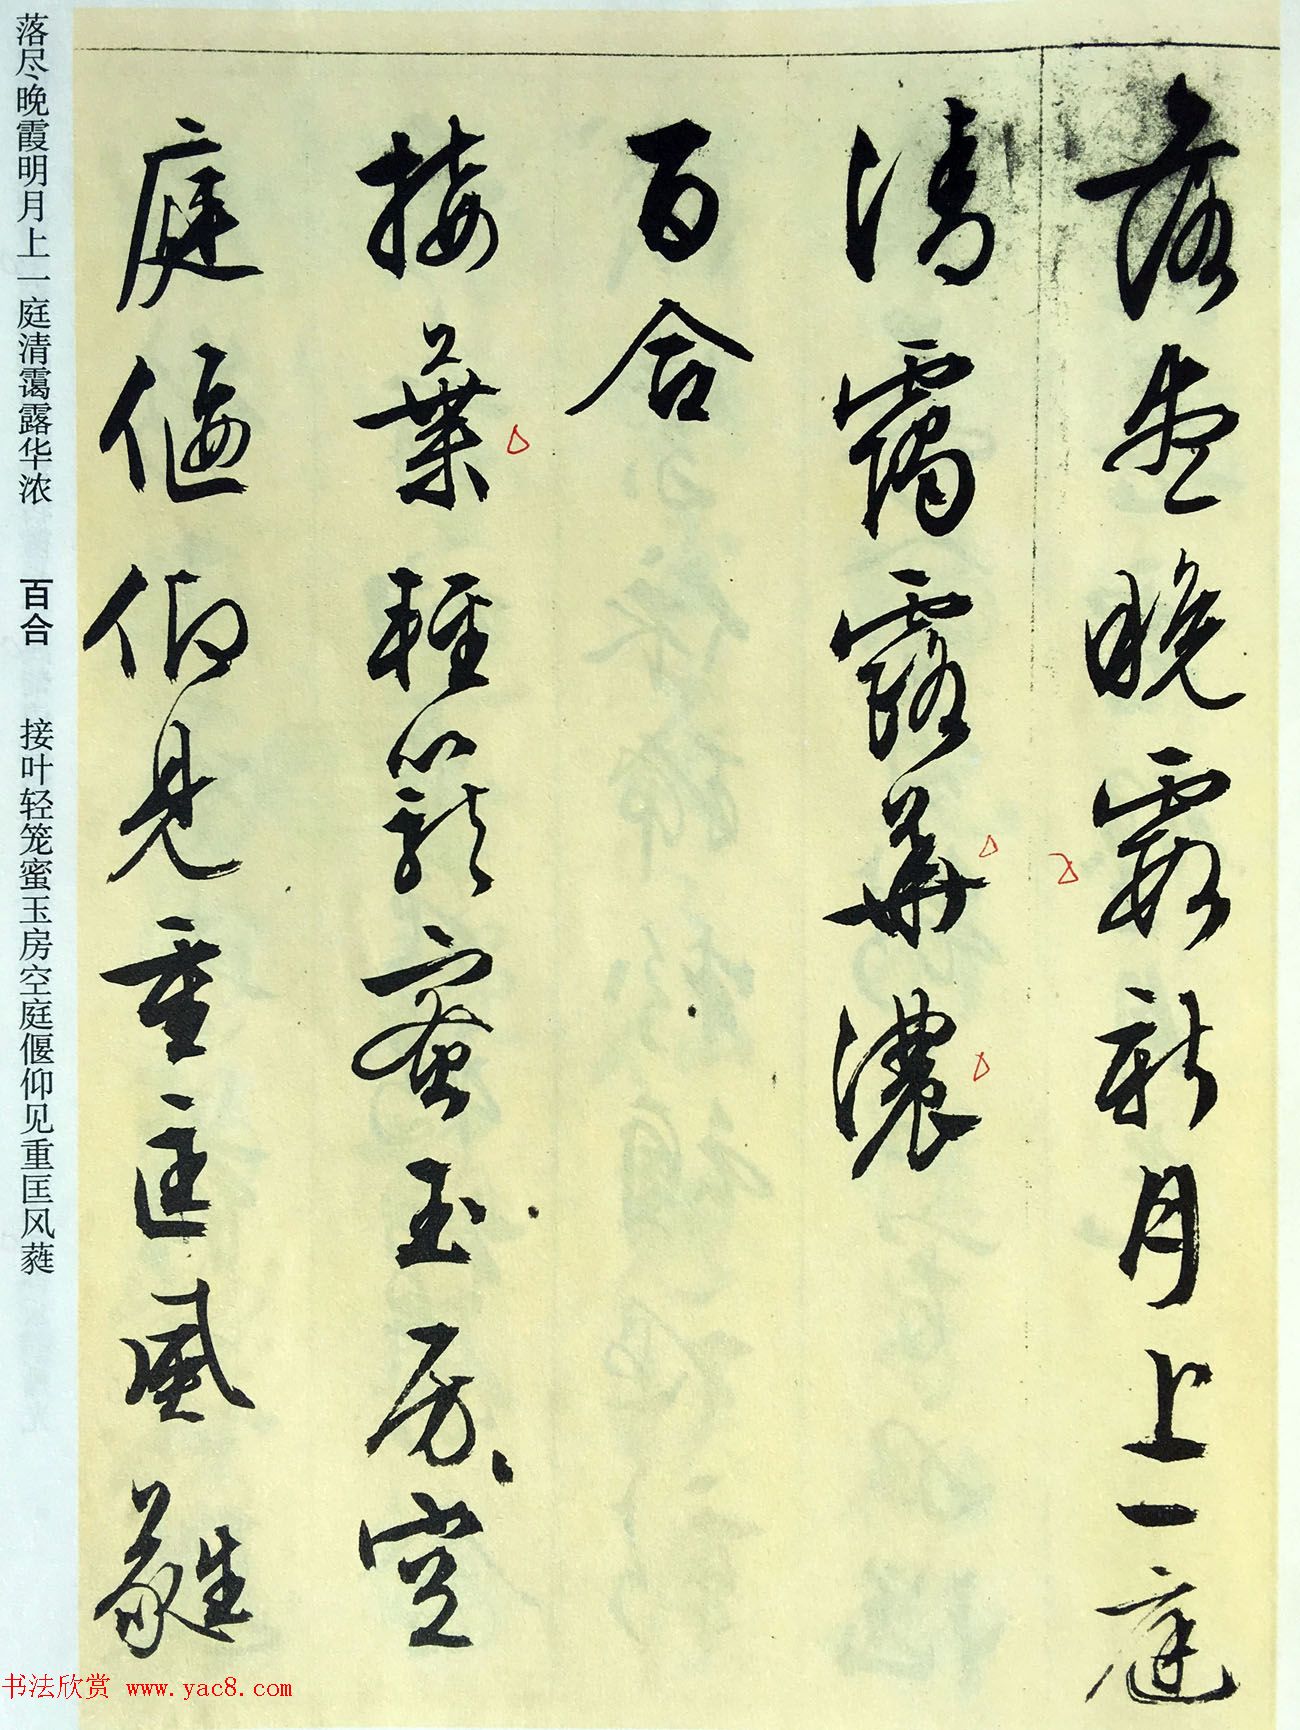 落尽晚霞新月上一庭
清霭露華濃
百合
接葉輕籠蜜玉房空
庭偃仰見重匡風蕤
落尽晚霞明月上一庭清霭露华浓 百合 接叶轻笼蜜玉房空庭偃仰见重匡风蕤
书法欣赏 www.yac8.com